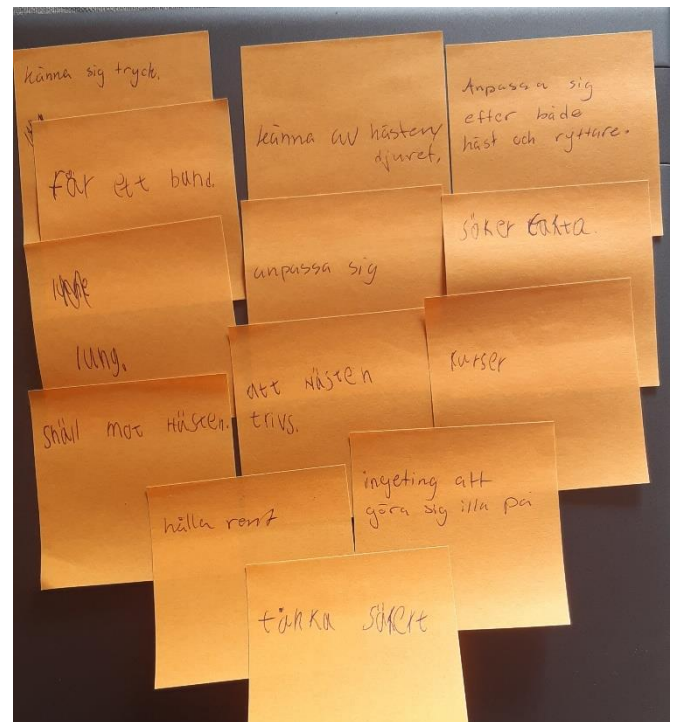 känna sig tryck.
Får ett band.
lung.
snäll mot Hästen.
känna av hästen/
djuret.
anpassa sig
att Hästen
trivs.
hålla rent
Anpassa sig
efter både
häst och ryttare.
söker fakta.
kurser
ingeting att
göra sig illa på
tänka säkert